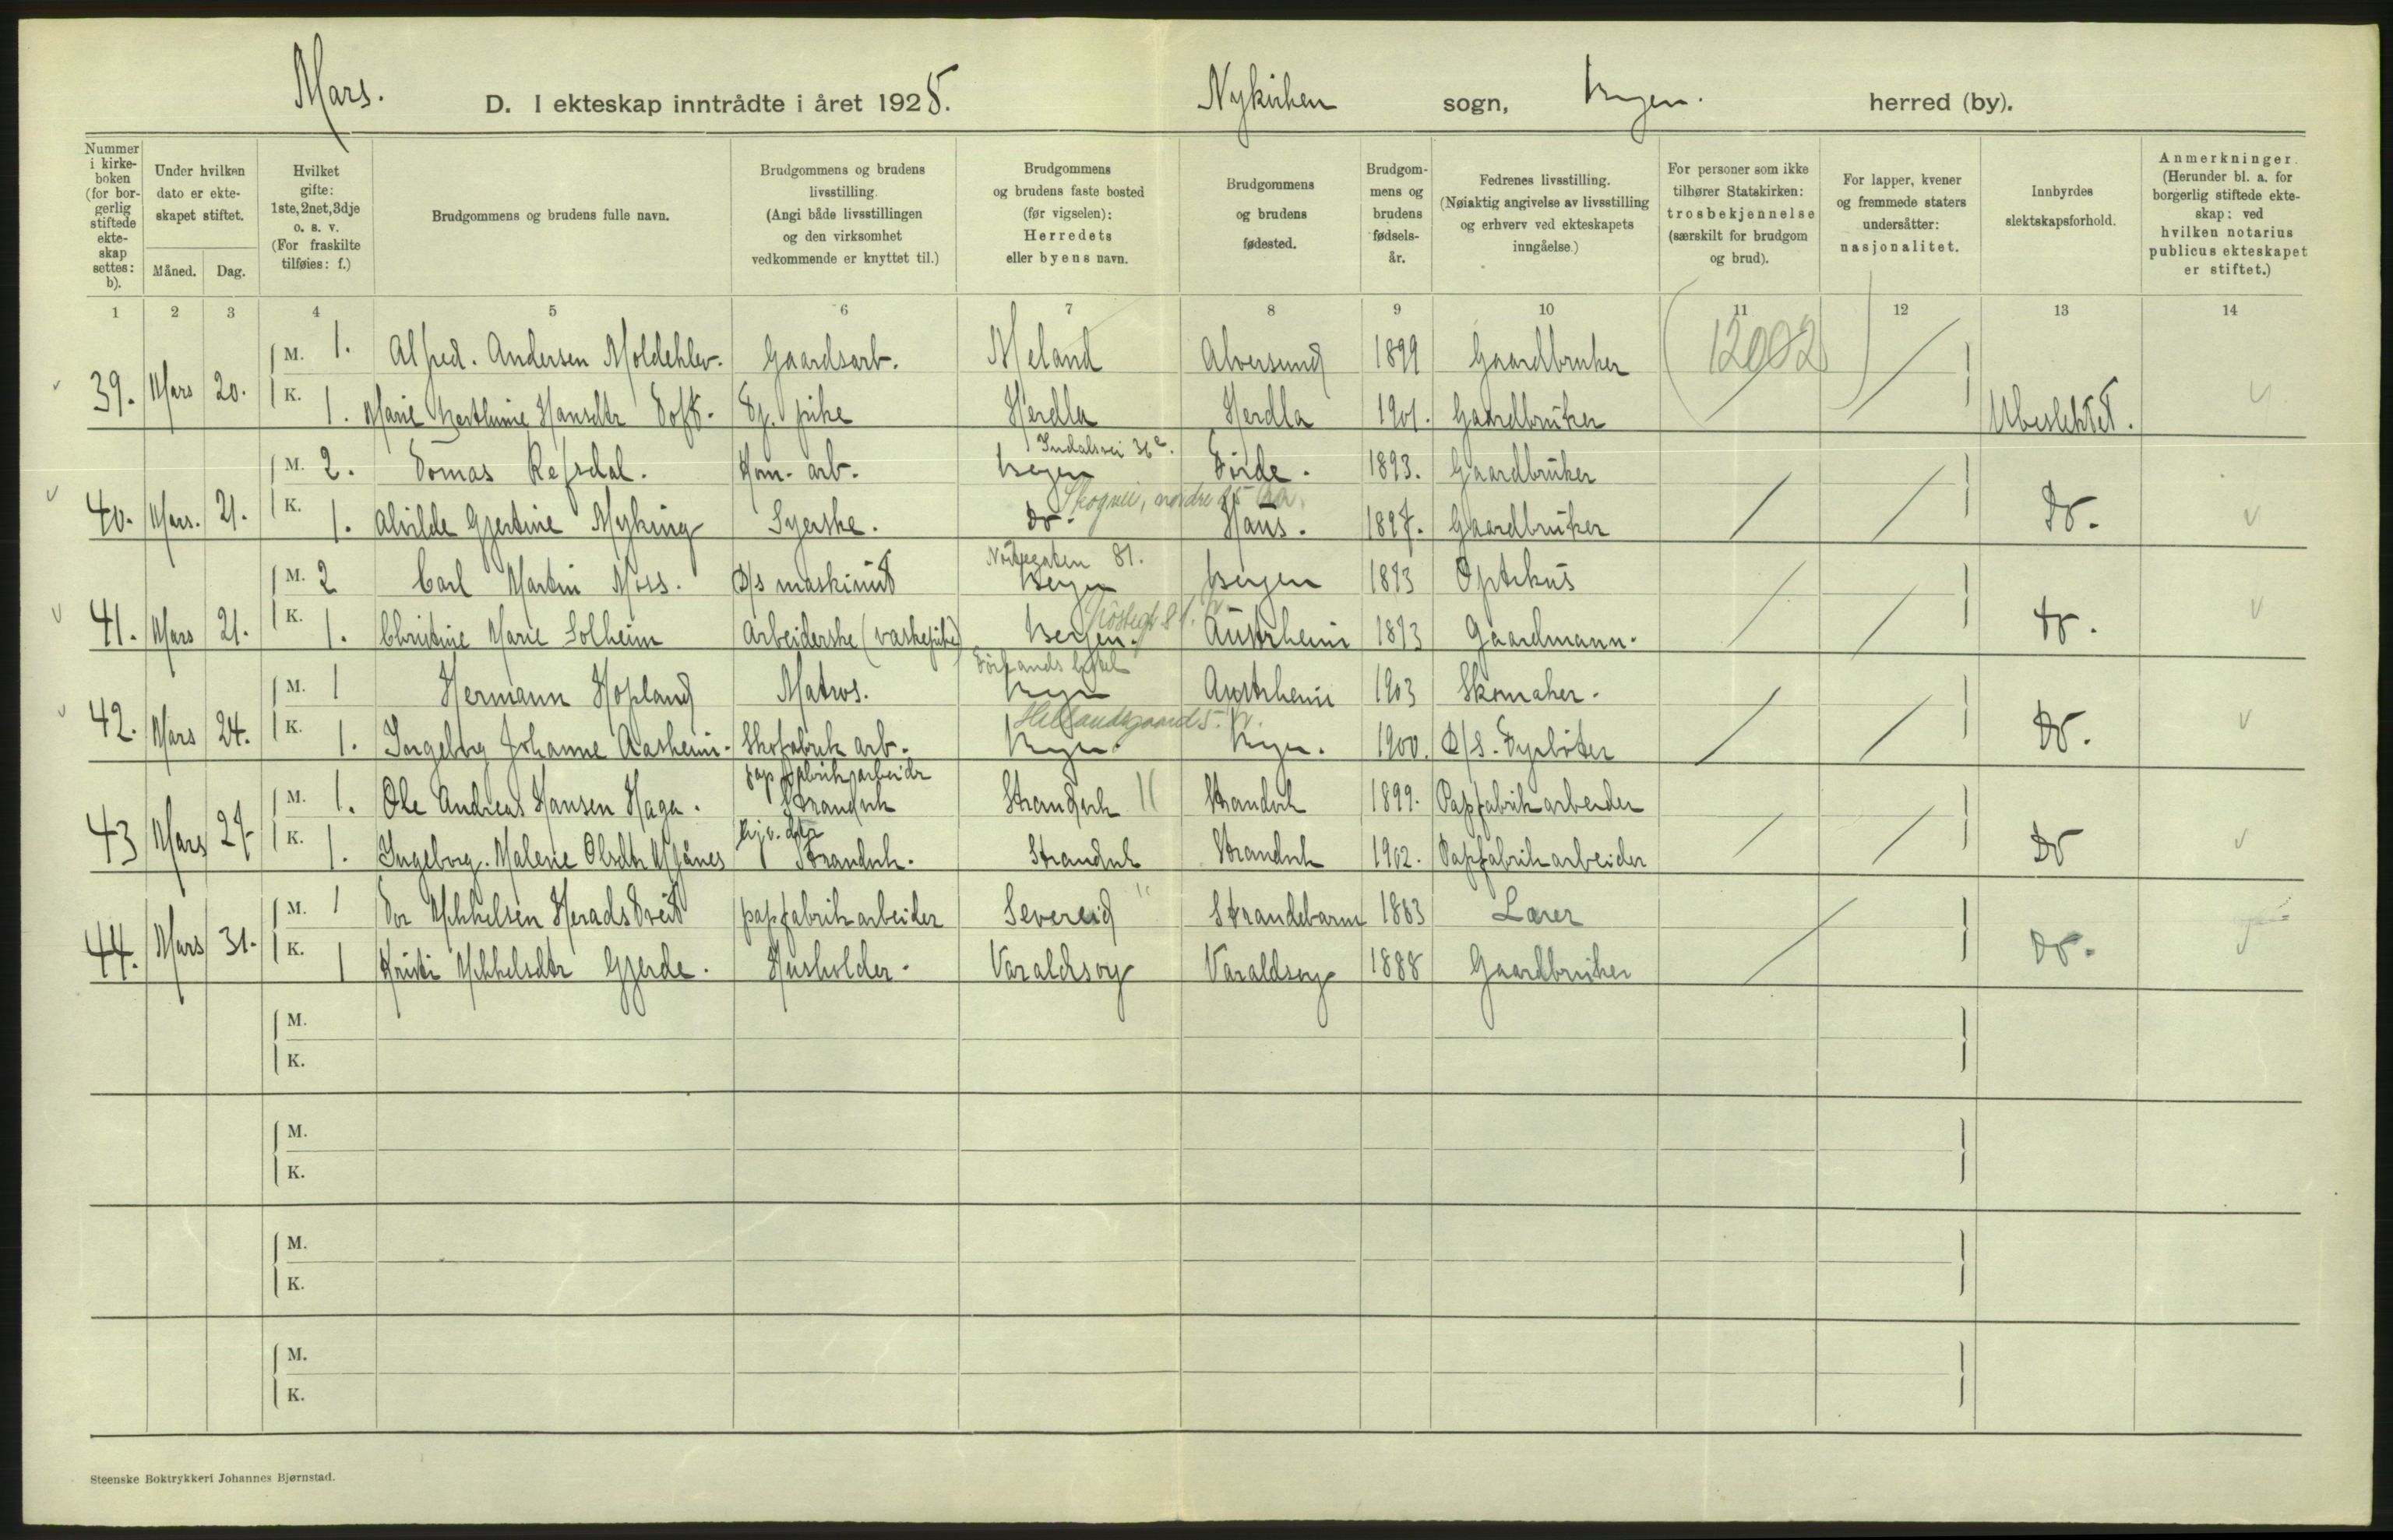 Mars.
D. I ekteskap inntrådte i året 1925.
Nykirken sogn, Bergen. herred (by).
Nummer i kirkeboken (for borgerlig stiftede ekteskap settes: b).
Under hvilken dato er ekteskapet stiftet.
Måned. Dag.
Hvilket gifte: 1ste, 2net, 3dje o. s. v. (For fraskilte tilføies: f.)
Brudgommens og brudens fulle navn.
Brudgommens og brudens livsstilling. (Angi både livsstillingen og den virksomhet vedkommende er knyttet til.)
Brudgommens og brudens faste bosted (før vigselen): Herredets eller byens navn.
Brudgommens og brudens fødested.
Brudgommens og brudens fødselsår.
Fedrenes livsstilling. (Nøiaktig angivelse av livsstilling og erhverv ved ekteskapets inngåelse.)
For personer som ikke tilhører Statskirken: trosbekjennelse (særskilt for brudgom og brud).
For lapper, kvener og fremmede staters undersåtter: nasjonalitet.
Innbyrdes slektskapsforhold.
Anmerkninger. (Herunder bl. a. for borgerlig stiftede ekteskap: ved hvilken notarius publicus ekteskapet er stiftet.)
1 2 3 4 5 6 7 8 9 10 11 12 13 14
(12002)
M. 1. Alfred. Andersen Moldeklev. Gaardsarb. Meland Alversund 1899 Gaardbruker
39. Mars 20. K. 1. Marie Berthine Hansdtr Toft. Tj. pike Herdla Herdla 1901. Gaardbruker Ubeslektet.
Indalsvei 36
M. 2. Tomas Refsdal. Kom. arb. Bergen Förde. 1893. Gaardbruker
Skogvei, nordre
40. Mars. 21. K. 1. Alvilde Gjertine Myking Syerske. do. Haus. 1897. Gaardbruker do.
Nöstegaten 81.
M. 2 Carl Martin Moss. D/s maskinist Bergen Bergen 1893 Optikus
Nöstegt 81.
41. Mars 21. K. 1. Christine Marie Solheim Arbeiderske (vaskepike) Bergen. Austrheim 1893 Gaardmann. do.
M. 1 Hermann Hopland Matros. Bergen Austrheim 1903 Skomaker.
42. Mars 24. K. 1. Ingeborg Johanne Aasheim. Skofabrik arb. Bergen. Bergen. 1900. D/S. Fyrböter do.
papfabrikarbeider
M. 1. Ole Andreas Hansen Haga. Strandvik Strandvik Strandvik 1899. Papfabrikarbeider
43 Mars 27. K. 1. Ingeborg. Malene Olsdtr Strandvik. Strandvik Strandvik 1902. Papfabrikarbeider do
M. 1 Tor Mikkelsen Heradstveit papfabrikarbeider Sævareid Strandebarm 1883 Lærer
44. Mars 31. K. 1 Kristi Mikkelsdtr Gjerde. Husholder. Varaldsoy Varaldsoy 1888 Gaardbruker do.
M.
K.
M.
K.
M.
K.
M.
K.
Steenske Boktrykkeri Johannes Bjørnstad.